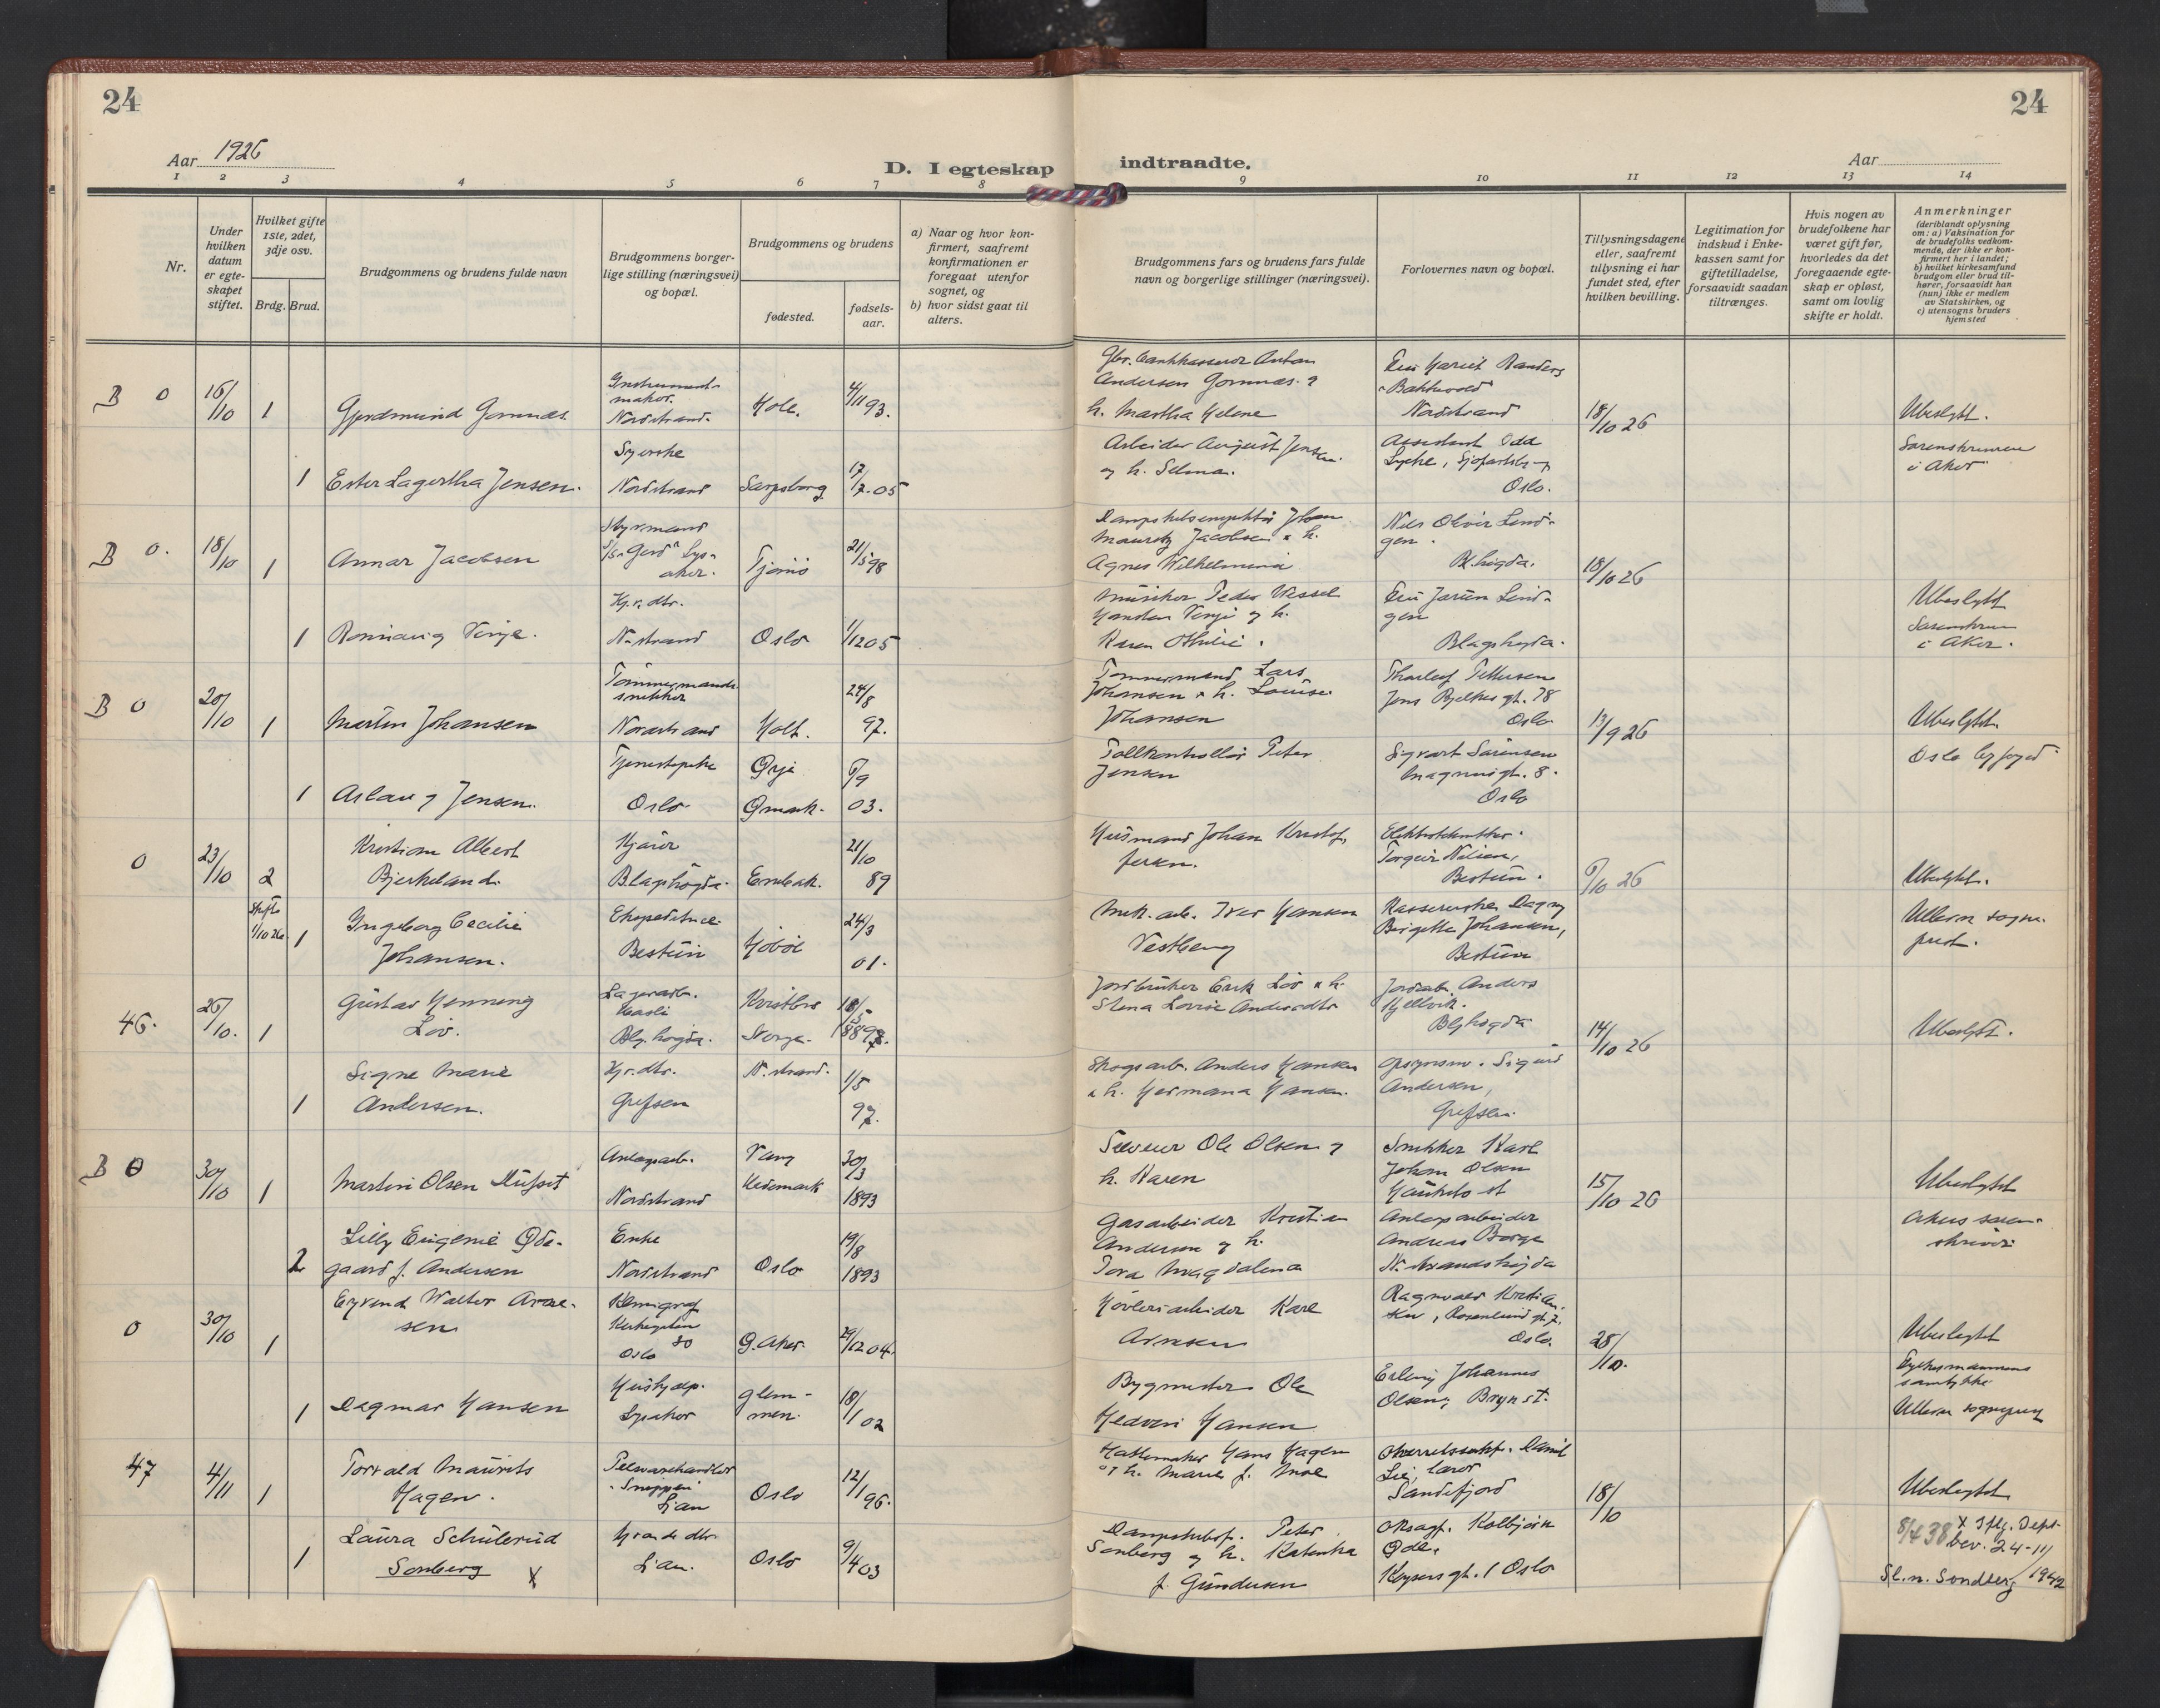 24
24
Aar 1926
D. I egteskap indtraadte.
Aar
1 2 3 4 5 6 7 8 9 10 11 12 13 14
Nr.
Under hvilken datum er egte-skapet stiftet.
Hvilket gifte 1ste, 2det, 3dje osv.
Brdg. Brud.
Brudgommens og brudens fulde navn
Brudgommens borger-
lige stilling (næringsvei)
og bopæl.
Brudgommens og brudens
fødested.
fødsels-
aar.
a) Naar og hvor kon-
firmert, saafremt
konfirmationen er
foregaat utenfor
sognet, og
b) hvor sidst gaat til
alters.
Brudgommens fars og brudens fars fulde
navn og borgerlige stillinger (næringsvei).
Forlovernes navn og bopæl.
Tillysningsdagene
eller, saafremt
tillysning ei har
fundet sted, efter
hvilken bevilling.
Legitimation for
indskud i Enke-
kassen samt for
giftetilladelse,
forsaavidt saadan
tiltrænges.
Hvis nogen av
brudefolkene har
været gift før,
hvorledes da det
foregaaende egte-
skap er opløst,
samt om lovlig
skifte er holdt.
Anmerkninger
(deriblandt oplysning
om: a) Vaksination for
de brudefolks vedkom-
mende, der ikke er kon-
firmert her i landet;
b) hvilket kirkesamfund
brudgom eller brud til-
hører, forsaavidt han
(hun) ikke er medlem
av Statskirken, og
c) utensogns bruders
hjemsted
B 0 16/10 1 Gjerdmund Gomnæs. Instrument-
maker.
Nordstrand. Hole. 4/11 93.
Andersen Gomnæs.
h. Martha Helene
Nordstrand 18/10 26 Ubeslgt.
1 Ester Lagertha Jensen. Syerske
Nordstrand Sarpsborg 17/7.05
Arbeider August Jensen
og h. Selma.
Assistent Odd
Lyche,
Oslo.
Sorenskriveren
i Aker
B 0. 18/10 1 Annar Jacobsen Styrmand
S/S "Gerd" Lys-
aker. Tjømø 21/5 98
Mauritz Jacobsen & h.
Agnes Wilhelmine
Nils Olivir Lend-
gen.
Bl.høgda. 18/10 26
1 Ronnaug Vinje. Hj.v. dtr.
N.strand Oslo 1/12 05
Musiker Peder Wessel
Hansten Vinje og h.
Karen Othilie.
Blagshøgda.
Ubeslgt
i Aker.
B 0 20/10 1 Martin Johansen Tømmermand
snekker
Nordstrand Holt. 24/8
97.
Tømmermand Lars
Johansen & h. Louise
Johansen
Thorleif Pettersen
Jens Bjelkes gt. 78
Oslo 13/9 26 Ubeslgt
1 Aslaug Jensen. Tjenestepike
Oslo Øyje
Ømark. 6/9
03.
Tollkontrollør Peter
Jensen
Sigvart Sørensen
Magnusgt. 8.
Oslo
Oslo byfoged
0 23/10 2 Kristian Albert
Bjerkeland. Kjører
Blagshøgda. Enebak. 21/10
89
Husmand Johan Kristof-
fersen.
Torgeir Nilsen,
Bestun. 6/10 26 Ubeslgt.
Skifte
1/10 26. 1 Ingeborg Cecilie
Johansen. Ekspeditrice
Bestun Hobøl 24/3
01.
Mek. arb. Iver Hansen
Vestberg
Kassererske Dagny
Birgitte Johansen,
Bestun
Ullern sogne-
prest.
46. 26/10. 1 Gustav Henning
Löv. Lagerarb.
Blg. høgda. Norge. 18/5
Jordbruker Erik Löv & h.
Stina Lovise Andersdtr
Jordarb. Anders
Kjellvik.
Blghøgda 14/10 26 Ubeslgt.
1 Signe Marie
Andersen. Hj. dtr.
Grefsen N.strand. 1/5
97.
Skogsarb. Anders Hansen
& h. Hermana Hansen.
Sigurd
Andersen,
Grefsen.
B 0 30/10 1 Martin Olsen Anlegsarb.
Nordstrand Vang
Hedemark 30/3
1893
Ole Olsen og
h. Karen
Snekker Karl
Johan Olsen
Hauketo st 15/10 26 Ubeslgt
2 Lilly Eugenie Øde-
gaard f. Andersen Enke
Nordstrand Oslo 19/8
1893
Gasarbeider Kristian
Andersen og h.
Tora Magdalena
Anlegsarbeider
Andreas Borge
N.strandshøgda
Akers soren-
skriver
0 30/10 1 Eyvend Walter Arne-
sen Kemigraf
Kirkegaten
30
Oslo Ø. Aker. 29/12 04.
Høvleriarbeider Karl
Arnesen
Ragnvald Kristian-
sen, Rosenlund gt. 7.
Oslo. 28/10. Ubeslgt
1 Dagmar Hansen Hushjelp.
Lysaker Glem-
men. 18/1 02
Bygmester Ole
Hedvin Hansen
Erling Johannes
Olsen, Bryn st.
Fylkesmannens
samtykke
Ullern sogneprest
47 4/11 1 Torvald Maurits
Hagen. Pelsvarehandler
Ljan Oslo 12/1 96.
Hattemaker Hans Hagen
og h. Marie f. Moe
Lie, lærer
Sandefjord 18/10 Ubeslgt
1 Laura Schulerud
Sonberg X Hj. dtr.
Ljan. Oslo 9/4 03
Dampskibsf. Peter
Sonberg og h. Katinka
f. Gundersen
Kolbjørn
Øde,
Keysers gt. 1 Oslo
8/4 38 X Iflg. Dept.
bev. 24-11/1942
Sl.n. Sondberg